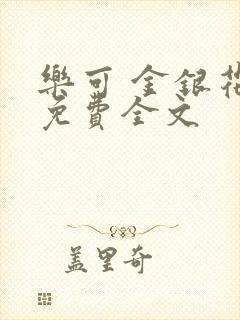 樂可 金銀花
免費全文
盖里奇